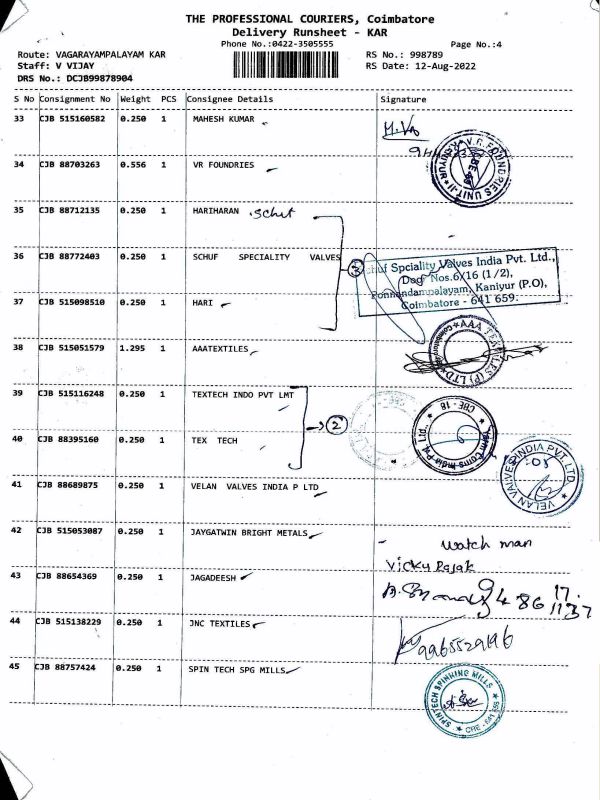 THE PROFESSIONAL COURIERS, Coimbatore
Delivery Runsheet - KAR
Phone No.:0422-3505555
Page No.:4
Route: VAGARAYAMPALAYAM KAR
RS No.: 998789
Staff: V VIJAY
RS Date: 12-Aug-2022
DRS No.: DCJB99878904
S No Consignment No Weight PCS Consignee Details Signature
33 CJB 515160582 0.250 1 MAHESH KUMAR
34 CJB 88703263 0.556 1 VR FOUNDRIES
V.R. FOUNDRIES UNIT-II
35 CJB 88712135 0.250 1 HARIHARAN
36 CJB 88772403 0.250 1 SCHUF SPECIALITY VALVES
3
Schuf Spciality Valves India Pvt. Ltd.,
Door Nos.6/16 (1/2),
Ponnandampalayam, Kaniyur (P.O),
Coimbatore - 641 659.
37 CJB 515098510 0.250 1 HARI
38 CJB 515051579 1.295 1 AAATEXTILES
AAA TEXTILES (P) LTD
39 CJB 515116248 0.250 1 TEXTECH INDO PVT LMT
2
40 CJB 88395160 0.250 1 TEX TECH
India Pvt. Ltd.,
41 CJB 88689875 0.250 1 VELAN VALVES INDIA P LTD
VELAN VALVES INDIA PVT. LTD.
42 CJB 515053087 0.250 1 JAYGATWIN BRIGHT METALS
watch man
43 CJB 88654369 0.250 1 JAGADEESH
Vicky
44 CJB 515138229 0.250 1 JNC TEXTILES
9965529196
45 CJB 88757424 0.250 1 SPIN TECH SPG MILLS
SPINTECH SPINNING MILLS